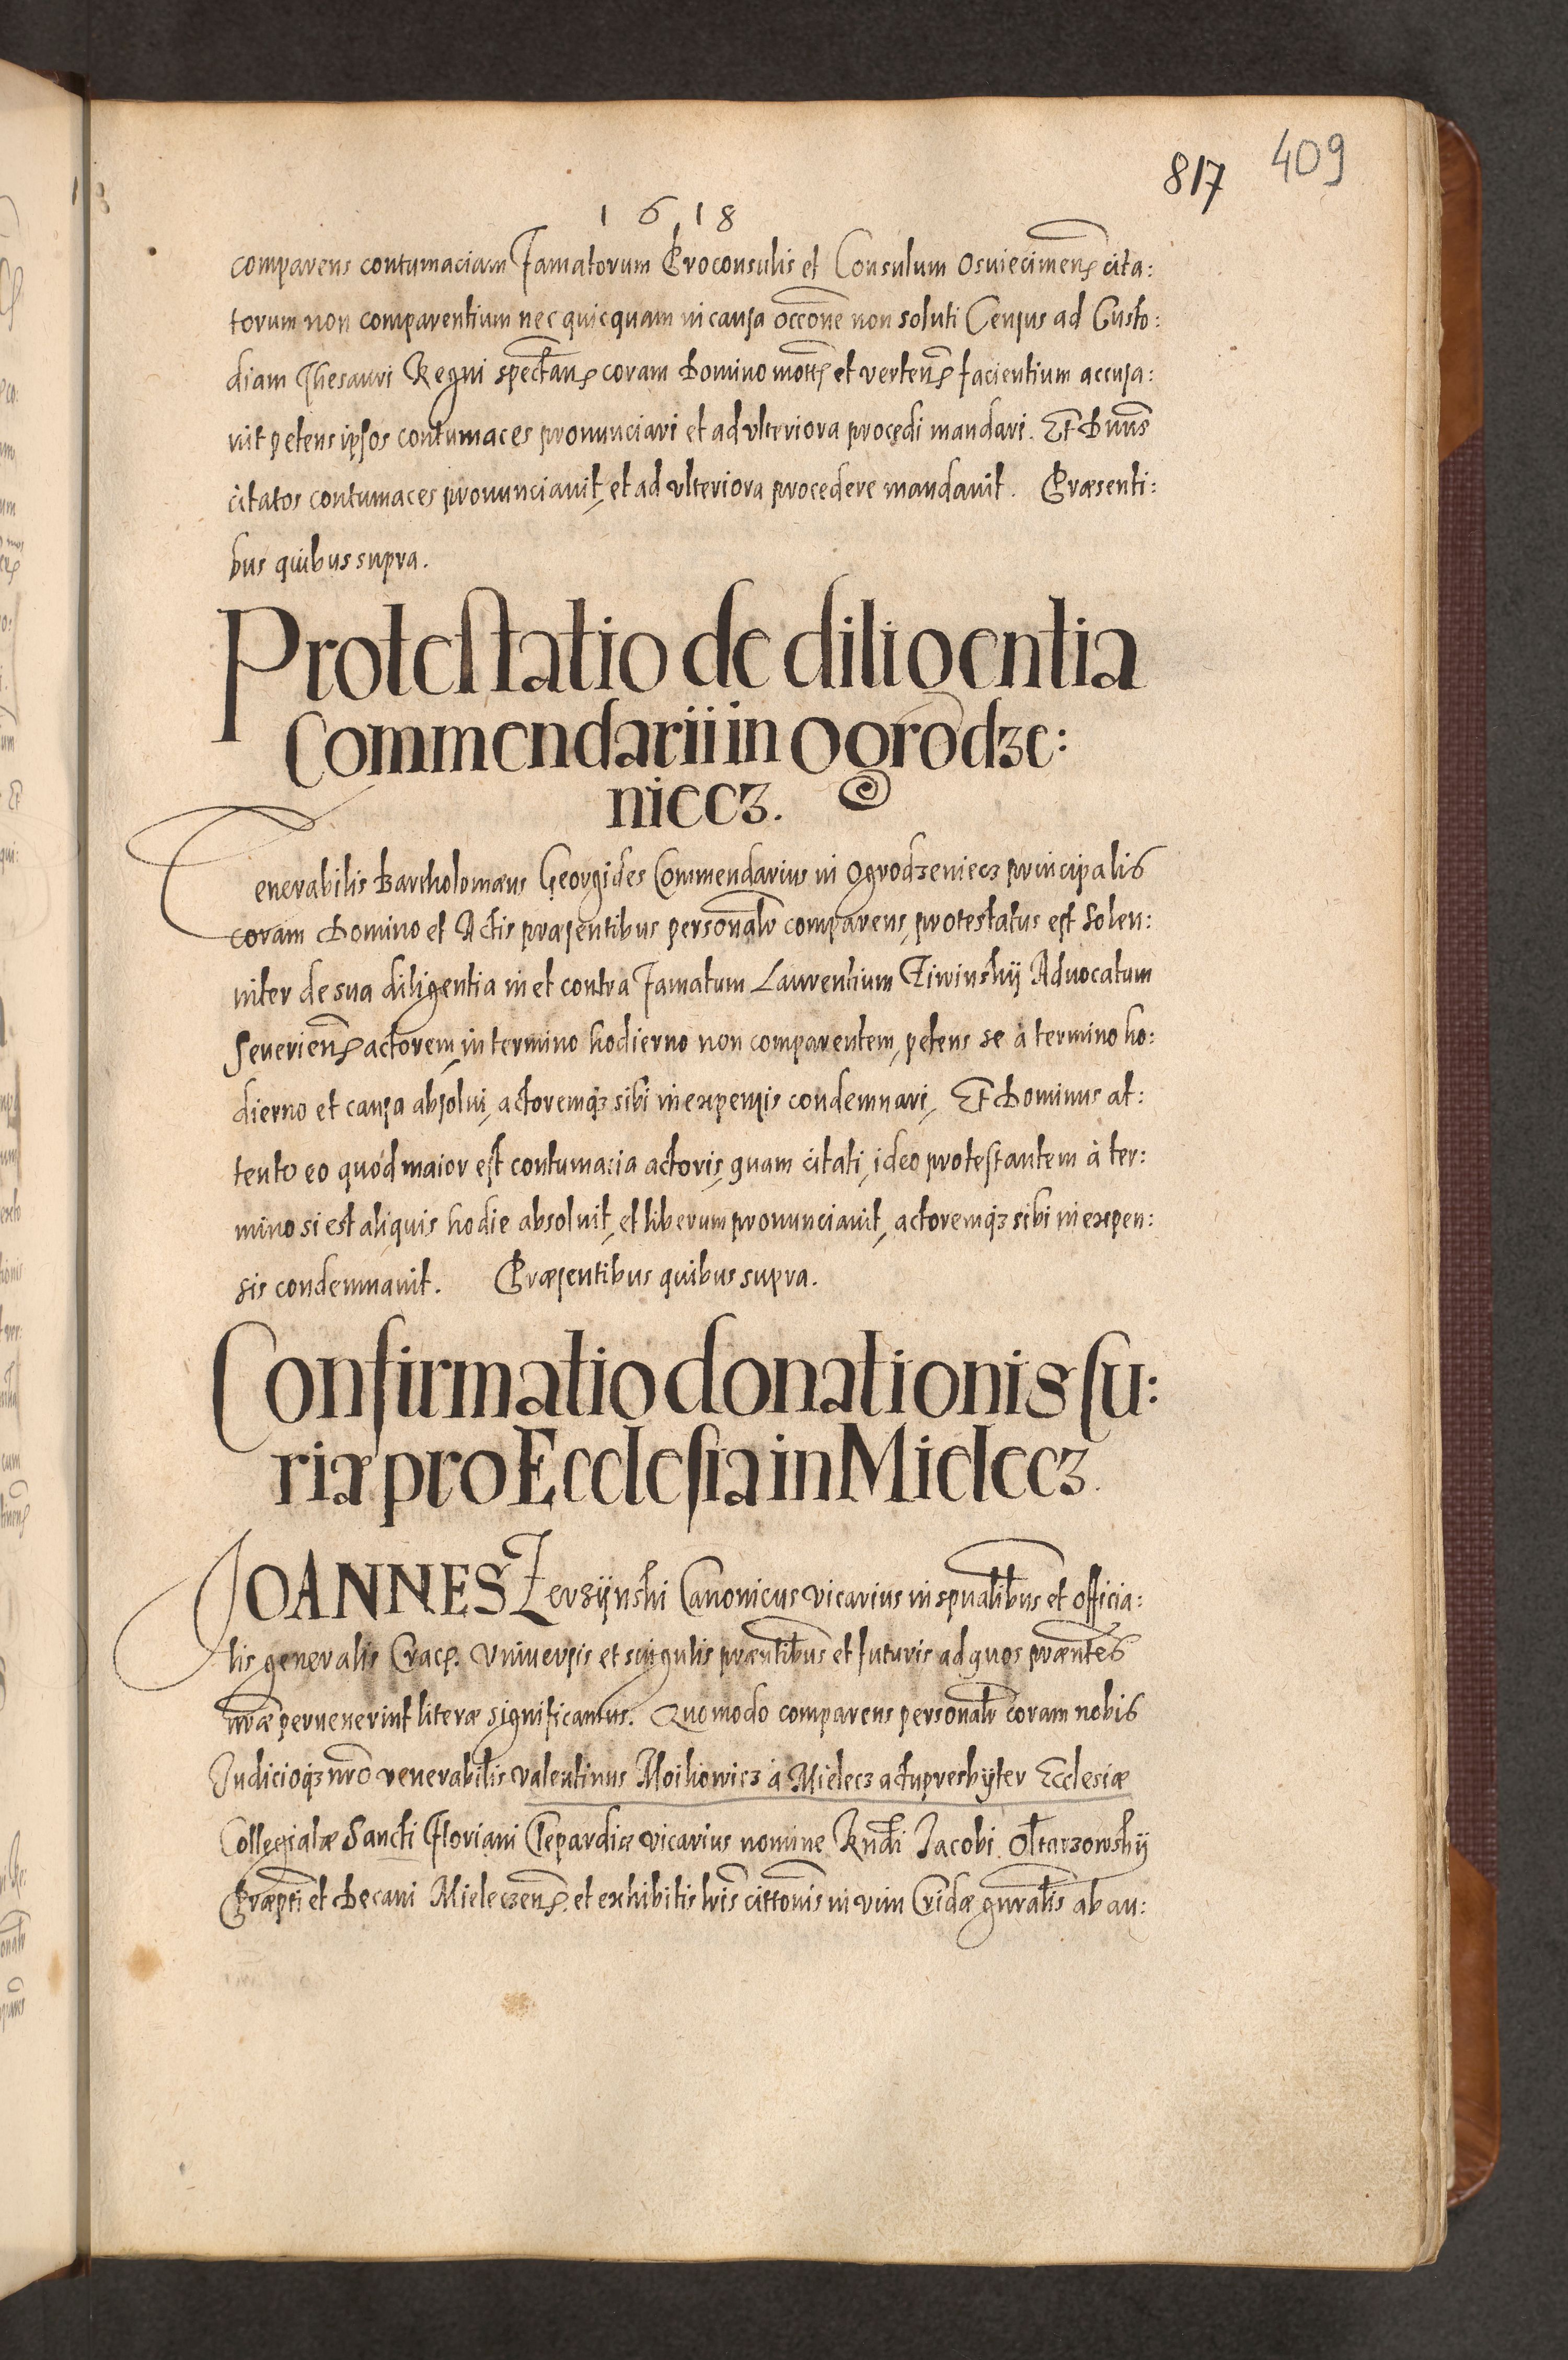 817 409
1618
comparens contumaciam Famatorum Proconsulis et Consulum Osviecimen̄ cita:
torum non comparentium nec quicquam in causa occōne non soluti Census ad Custo:
diam Thesauri Regni spectan̄ coram Domino mott̄ et verten̄ facientium accusa:
vit petens ipsos contumaces pronunciari et ad vlteriora procedi mandari. Et Dnūs
citatos contumaces pronunciauit, et ad vlteriora procedere mandauit. Præsenti:
bus quibus supra.
Protestatio de diligentia
Commendarii in Ogrodze:
niecz.
Venerabilis Bartholomæus Georgides Commendarius in Ogrodzeniecz principalis
coram Domino et Actis præsentibus personalr̄ comparens, protestatus est Solen:
niter de sua diligentia in et contra Famatum Laurentium Ziwinskÿ Aduocatum
Seuerien̄ actorem, in termino hodierno non comparentem, petens se à termino ho:
dierno et causa absolui, actoremq3 sibi in expensis condemnari, Et Dominus at:
tento eo quód maior est contumacia actoris, quam citati, ideo protestantem à ter:
mino si est aliquis hodie absoluit, et liberum pronunciauit, actoremq3 sibi in expen:
sis condemnauit. Præsentibus quibus supra.
Confirmatio donationis su:
riæ pro Ecclesia in Mielecz.
JOANNES Zerzÿnski Canonicus vicarius in spualibus et officia:
lis generalis Crac̄. Vniuersis et singulis præntibus et futuris ad quos præntes
nr̄æ peruenerint literæ significamus. Quomodo comparens personalr̄ coram nobis
Judicioq3 nr̄o venerabilis valentinus Moikowicz à Mielecz actupresbÿter Ecclesiæ
Collegiatæ Sancti Floriani Clepardiæ vicarius nomine Rndi Jacobi Oltarzowskÿ
Præpti et Decani Mieleczen̄. et exhibitis lris cittonis in vim Cridæ gnralis ab au: